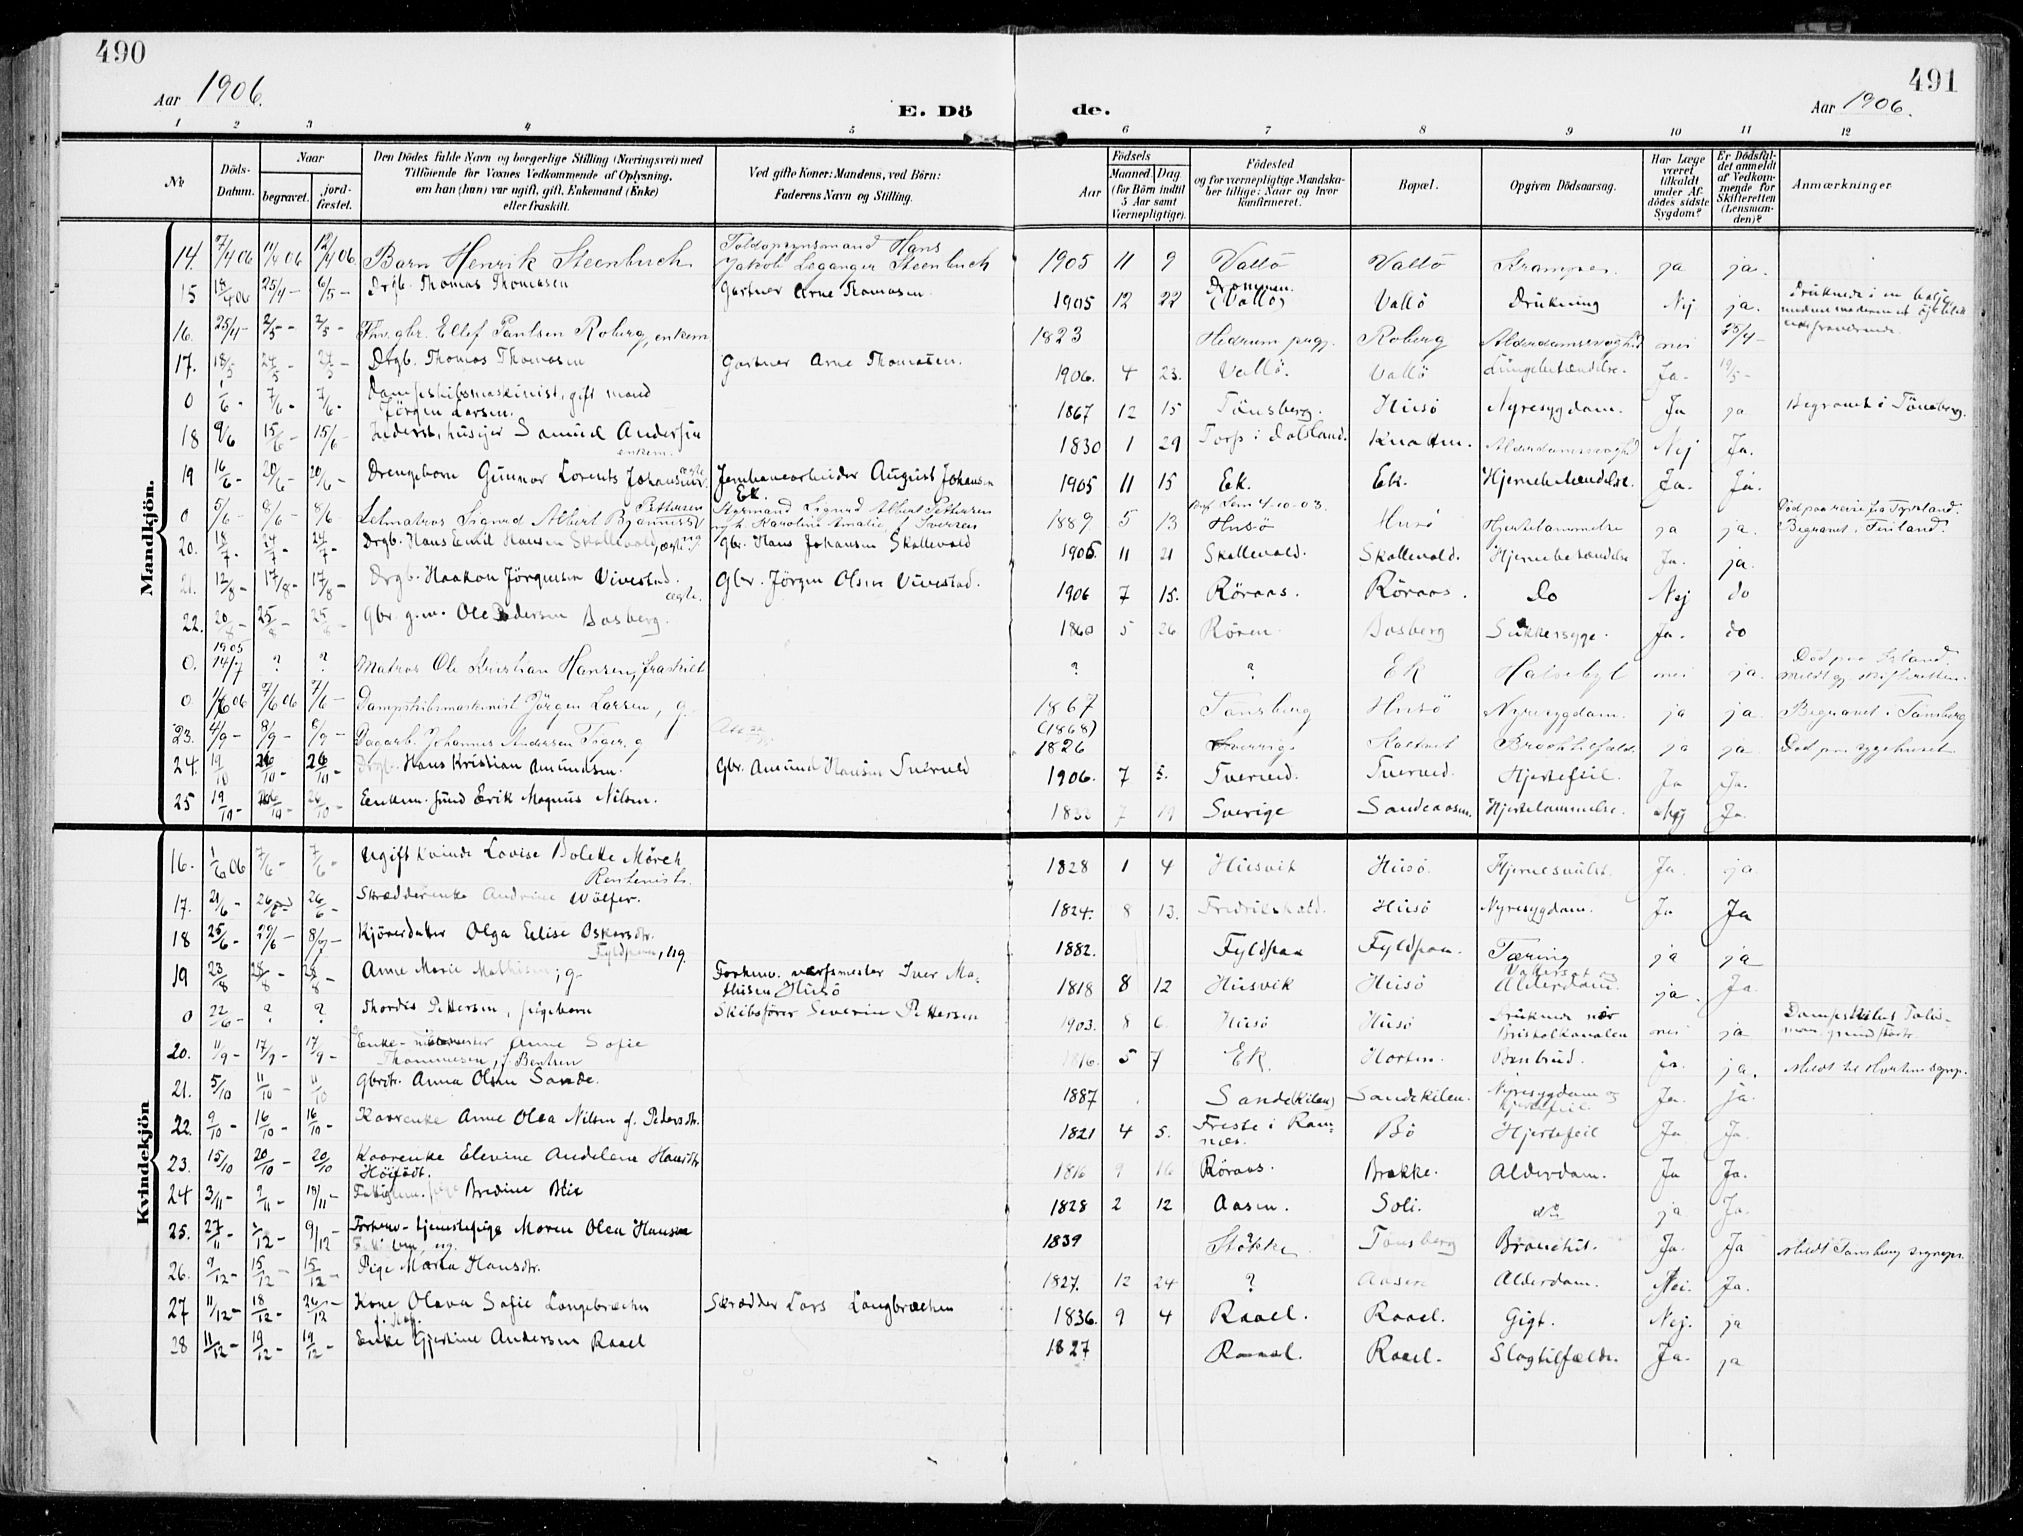 490
Aar 1906.
E. Dö
de.
491
Aar 1906.
1 2 3 4 5 6 7 8 9 10 11 12
No
Döds-Datum.
Naar
begravet.
jord-fæstet.
Den Dödes fulde Navn og borgerlige Stilling (Næringsvei) med
Tilföiende for Voxnes Vedkommende af Oplysning,
om han (hun) var ugift, gift, Enkemand (Enke)
eller fraskilt.
Ved gifte Koner: Mandens, ved Börn:
Faderens Navn og Stilling.
Födsels
Aar
Maaned. Dag.
(for Börn indtil
5 Aar samt
Værnepligtige).
Födested
og for værnepligtige Mandska-
ber tillige: Naar og hvor
konfirmeret.
Bopæl.
Opgiven Dödsaarsag.
Har Læge
været
tilkaldt
under Af-
dödes sidste
Sygdom?
Er Dödsfal-
det anmeldt
af Vedkom-
mende for
Skifteretten
(Lensman-
den)?
Anmærkninger.
Mandkjön.
14. 7/4 06 11/4 06 12/4 06 Barn Henrik Steenbuch Toldopsynsmand Hans Jakob Leganger Steenbuch 1905 11 9 Vallö Vallö Kramper ja ja.
15 18/4 06 25/4 – 6/5 – Drgb. Thomas Thomasen Gartner Arne Thomasen. 1905 12 22 Drammen. (Vallö) Vallö Drukning Nej ja. Druknede i en balje
16. 25/4 – 2/5 – 2/5 – Fhv. gbr. Ellef Paulsen Roberg, enkem 1823 Hedrum prgj. Roberg Alderdomssvaghed nei 25/4 –
17. 18/5 24/5 – 24/5 – Drgb. Thomas Thomasen Gartner Arne Thomasen. 1906. 4 23. Vallö. Vallö Lungebetændelse. Ja. 19/5 –
0 1/6 – 7/6 – 7/6 – Dampskibsmaskinist, gift mand Jörgen Larsen. 1867 12 15 Tönsberg. Husö Nyresygdom. Ja ja Begravet i Tönsberg.
18 9/6 15/6 – 15/6 – Inderst, husejer Samuel Andersen enkem. 1830 1 29 Torp i Dalsland. Knatten. Alderdomssvaghed Nej Ja.
19 16/6 – 20/6 – 20/6 – Drengebarn Gunnar Lorents Johansen ægte Jernbanearbeider August Johansen Ek. 1905 11 15 Ek. Ek. Hjernebetændelse. Ja. Ja.
0 5/6 – 8/6 – 8/6 – Letmatros Sigurd Albert Pettersen Styrmand Sigurd Albert Pettersen Karoline Amalie f. Iversen 1889 5 13 4-10-03. Husö Husö Hjertelammelse ja ja. Död paa reise fra Tyskland. Begravet i Finland.
20. 18/7 – 24/7 – 24/7 – Drgb. Hans Emil Hansen Skallevold, ægte Gbr. Hans Johansen Skallevold 1905 11 21 Skallevold. Skallevold. Hjernebetændelse Ja. ja.
21. 12/8 – 17/8 – 17/8 – Drgb. Haakon Jörgensen Vivestad. ægte. Gbr. Jörgen Olsen Vivestad. 1906 7 15. Röraas. Röraas. Do Nej do
22. 20/8 – 25/8 – 25/8 – Gbr. g.m. Ole Pedersen Basberg. 1860 5 26 Rören. Basberg Sukkersyge. Ja. do
0. 1905 14/7 ? ? Matros Ole Kristian Hansen, fraskilt ? ? Ek Halsebyl nei ja. Död paa Island.
0. 1/6 06 7/6 06 7/6 – Dampskibsmaskinist Jörgen Larsen, g. 1867 (1868) Tönsberg Husö Nyresygdom. ja ja. Begravet i Tönsberg
23. 4/9 – 8/9 – 9/9 – Dagarb. Johannes Andersen Tiger, g 1826 Sverrig ja ja Död paa sygehuset
24. 19/10 26/10 – 26/10 – Drgb. Hans Kristian Amundsen. Gbr. Amund Hansen Tverved 1906. 7 5. Tverved. Tverved. Hjertefeil. Ja Ja.
25 19/10 – 26/10 – 26/10 – Enkem. Erik Magnus Nilsen. 7 19 Sverige Sandeaasen. Hjertelammelse. Nej Ja.
Kvindekjön
16. 1/6 06 7/6 – 7/6 – Ugift Kvinde Lovise Bolette Mörch Rentenist. 1828 1 4 Husvik Husö. Hjernesvulst. Ja. ja
17. 21/6 – 26/6 – 26/6 – Skrædderenke Andrine Wölfer. 1824. 8 13. Fredrikshald. Husö Nyresygdom. Ja Ja
18 25/6 – 29/6 – 8/7 – Kjörerdatter Olga Elise Oskarsdtr. Fyldpaa, ug. 1882. Fyldpaa Fyldpaa. Tæring ja ja
19 23/8 28/8 – 28/8 – Anne Marie Mathisen, g. Forhenv. værfsmester Iver Ma-thisen Husö 1818 8 12 Husvik Husö Vattersot og Alderdom. ja. Ja.
0 22/6 – ? ? Thordis Pettersen, pigebarn Skibsförer Severin Pettersen 1903. 8 6. Husö Husö Druknede nær Bristolkanalen nei ja
20. 11/9 – 17/9 – 17/9 – Enke Anne Sofie Thommesen, f. Bentsen 1816. 5 7 Ek. Horten. Benbrud. Ja. ja. Meldt til Horten
21. 5/10 11/10 – 11/10 Gbrdtr. Anna Olsen Sande. 1887 Sande(kilen) Sandekilen. Nyresygdom og hjertefeil Ja. ja.
22. 9/10 – 16/10 – 16/10 – Kaarenke Anne Olea Nilsen f. Pedersdtr. 1821 4 5. Freste i Ram-næs. Bö Hjertefeil Ja Ja.
23. 15/10 20/10 – 20/10 Kaarenke Elevine Andelene Hansdtr. Höijödt. 1816 9 16 Röraas. Brekke. Alderdom. Ja Ja.
24 3/11 – 9/11 – 18/11 – Fattiglem. pige Bredine Blix 1828 2 12 Aasen. Soli. do ja Ja.
25. 27/11 – 1/12 – 9/12 – Forhenv. tjenestepige Maren Olea Hansen ug. 1839 Stokke Tönsberg Bronchit. Ja. Ja Meldt Tönsberg
26. 9/12 – 15/12 – 15/12 – Pige Maria Hansdtr. 1827. 12 24 ? Aasen Alderdom. Nei. Ja.
27 11/12 – 18/12 – 26/12 – Kone Olava Sofie Langebrække Skrædder Lars Langbrække 1836. 9 4 Raael. Raael. Gigt. Nej. ja
28 11/12 – 19/12 – 19/12 – Enke Gjertine Andersen Raael 1827 Raael. Raael. Slagtilfælde. Ja. ja